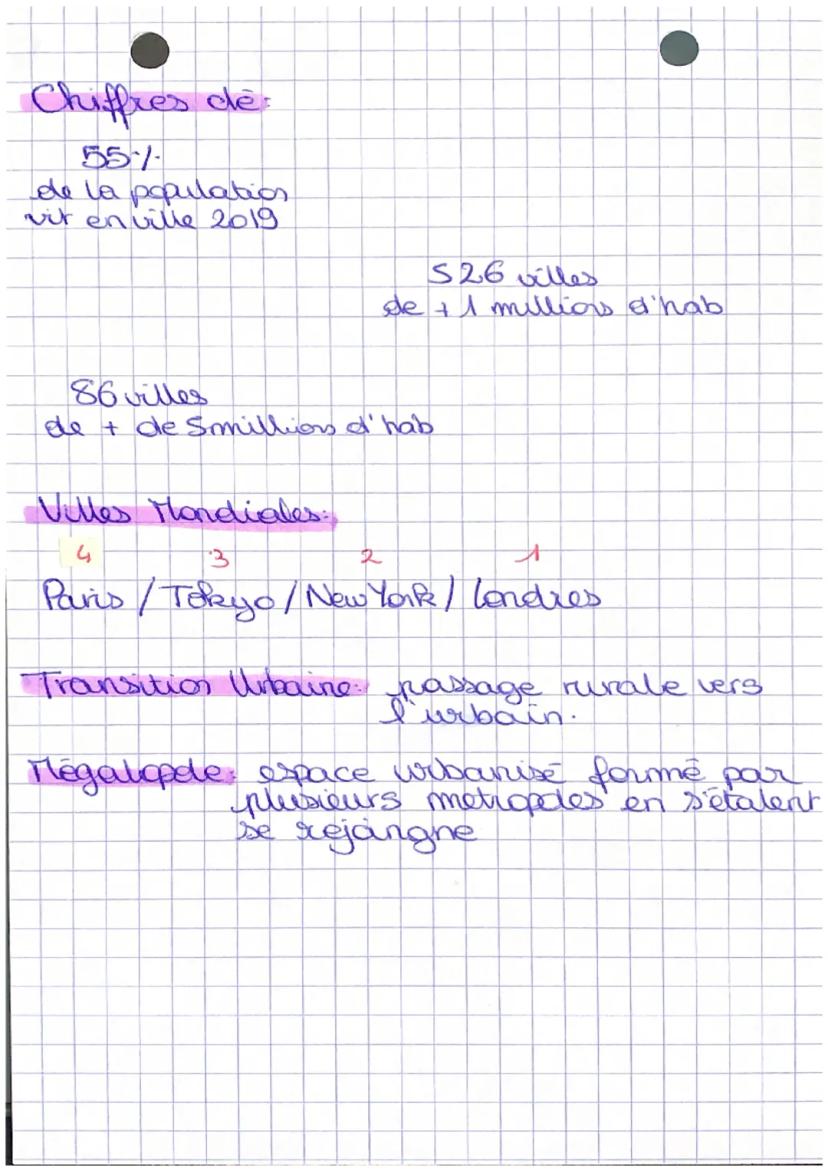 Chiffres clé:
55%
de la population
vit en ville 2019
526 villes
de + 1 millions d'hab
86 villes
de + de 5 millions d'hab
Villes Mondiales:
4 3 2 1
Paris / Tokyo / New York / Londres
Transition Urbaine: passage rurale vers
l'urbain.
Mégalopole: espace urbanisé formé par
plusieurs metropoles en s'étalent
se rejoingne